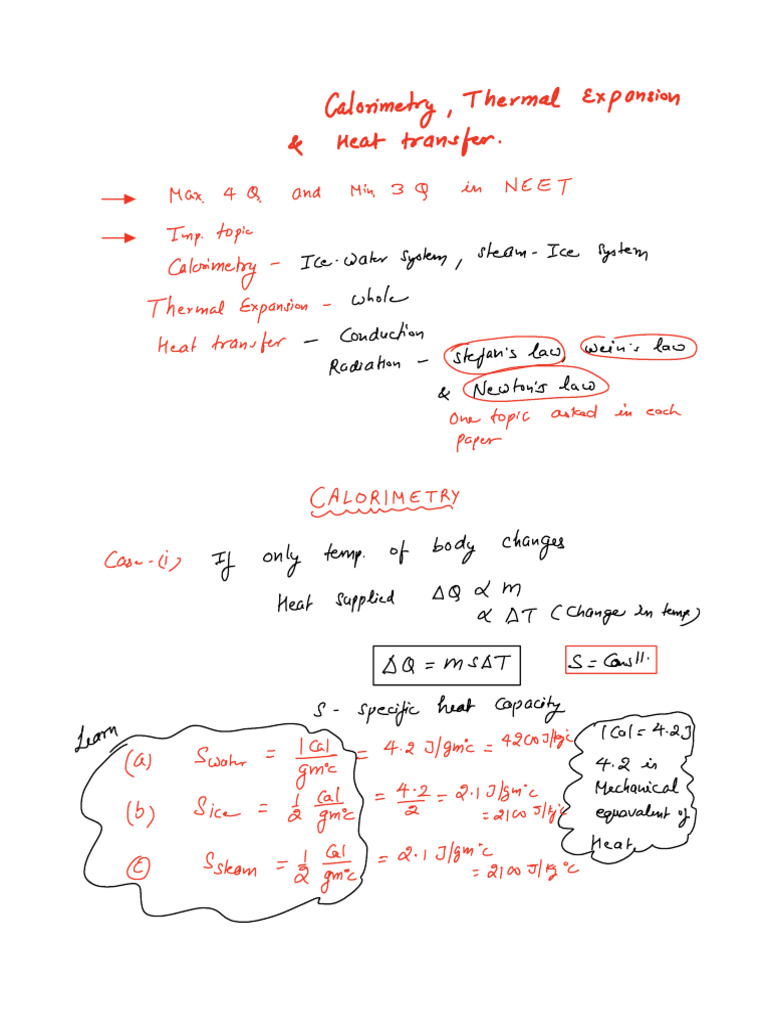 Calorimetry, Thermal Expansion
& Heat transfer.
→ Max. 4 Q and Min. 3 Q in NEET
→ Imp. topic
Calorimetry - Ice-water system, steam-Ice system
Thermal Expansion - whole
Heat transfer - Conduction
Radiation - Stefan's law, Wein's law
& Newton's law
One topic asked in each
paper
CALORIMETRY
Case-(i) If only temp. of body changes
Heat supplied ΔQ ∝ m
∝ ΔT (Change in temp.)
ΔQ = msΔT S = Constt.
S - specific heat capacity
Learn
(a) Swater = 1 Cal/gm°c = 4.2 J/gm°c = 4200 J/kg°c
(b) Sice = 1/2 Cal/gm°c = 4.2/2 = 2.1 J/gm°c
= 2100 J/kg°c
(c) Ssteam = 1/2 Cal/gm°c = 2.1 J/gm°c
= 2100 J/kg°c
1 Cal = 4.2 J
4.2 is
Mechanical
equavalent of
Heat